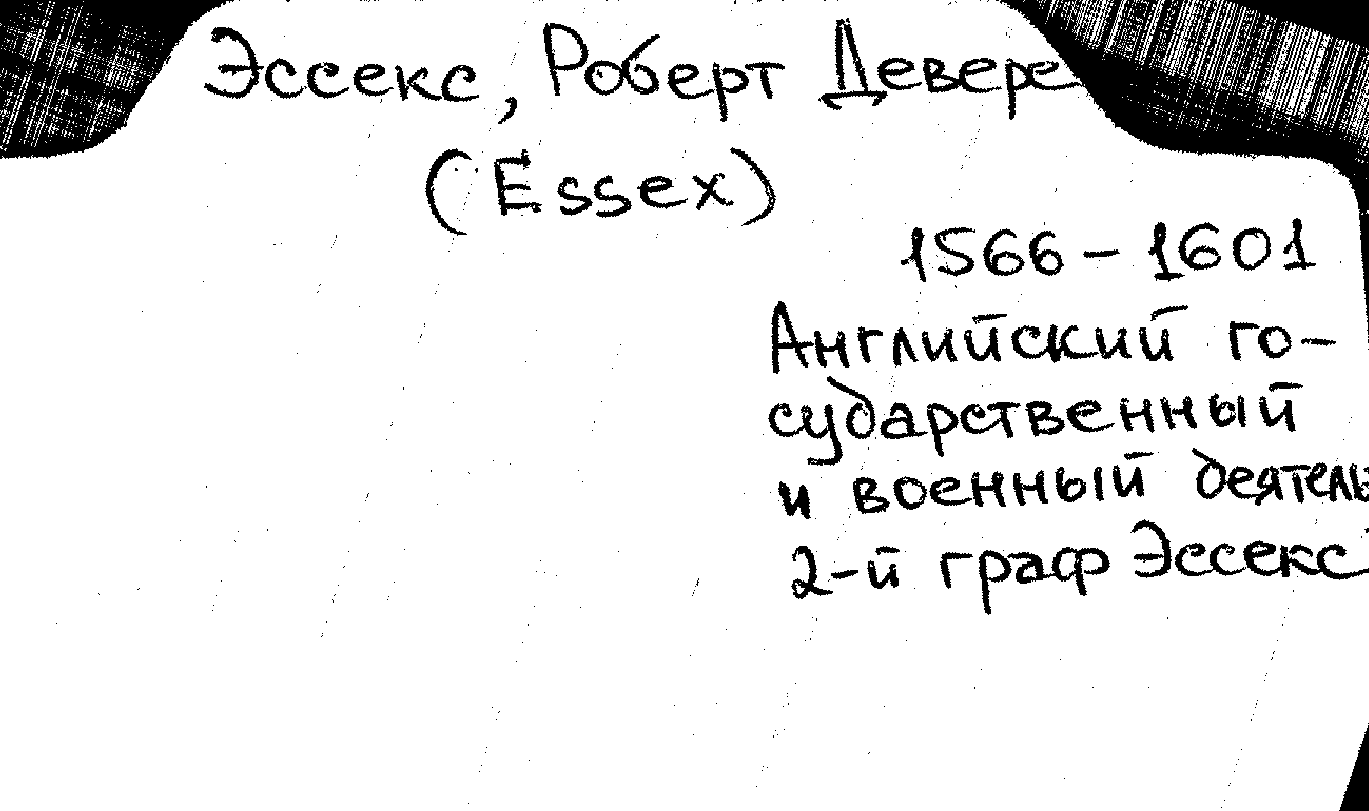 Эссекс, Роберт Девере
(Essex)
1566 – 1601
Английский го-
сударственный
и военный деятель
2-й граф Эссекс